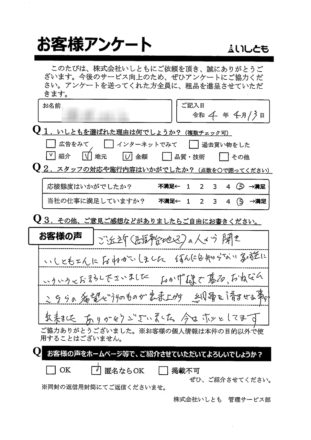 お客様アンケート
いしとも
このたびは、株式会社いしともにご依頼を頂き、誠にありがとうご
ざいます。今後のサービス向上のため、ぜひアンケートにご協力くだ
さい。アンケートを送ってくれた方全員に、粗品を進呈させていただ
きます。
お名前
ご記入日
令和 4 年 4月13日
Q1.いしともを選ばれた理由は何でしょうか?(複数チェック可)
広告をみて インターネットでみて 過去買い物をした
紹介 地元 金額 品質・技術 その他
Q2.スタッフの対応や施行内容はいかがでしたか?(点数を○で囲ってください)
応接態度はいかがでしたか? 不満足← 1 2 3 4 5 →満足
当社の仕事に満足していますか? 不満足← 1 2 3 4 5 →満足
Q3.その他、ご意見ご感想などがありましたらご自由にお書きください。
お客様の声
ご近所 の人から聞き
いしともさんに おねがいしました ほんとに何も知らない
こちらの希望どうりのものが出来上り
出来ました ありがとうございました 今はホッとしてます
ご協力ありがとうございました。※お客様の個人情報は本件の目的以外で使
用することはございません。
Q お客様の声をホームページ等で、ご紹介させていただいてよろしいでしょうか?
OK 匿名ならOK 掲載不可
ぜひ、ご紹介させてください。
※同封の返信用封筒にてご返信くださいませ。
株式会社いしとも 管理サービス部